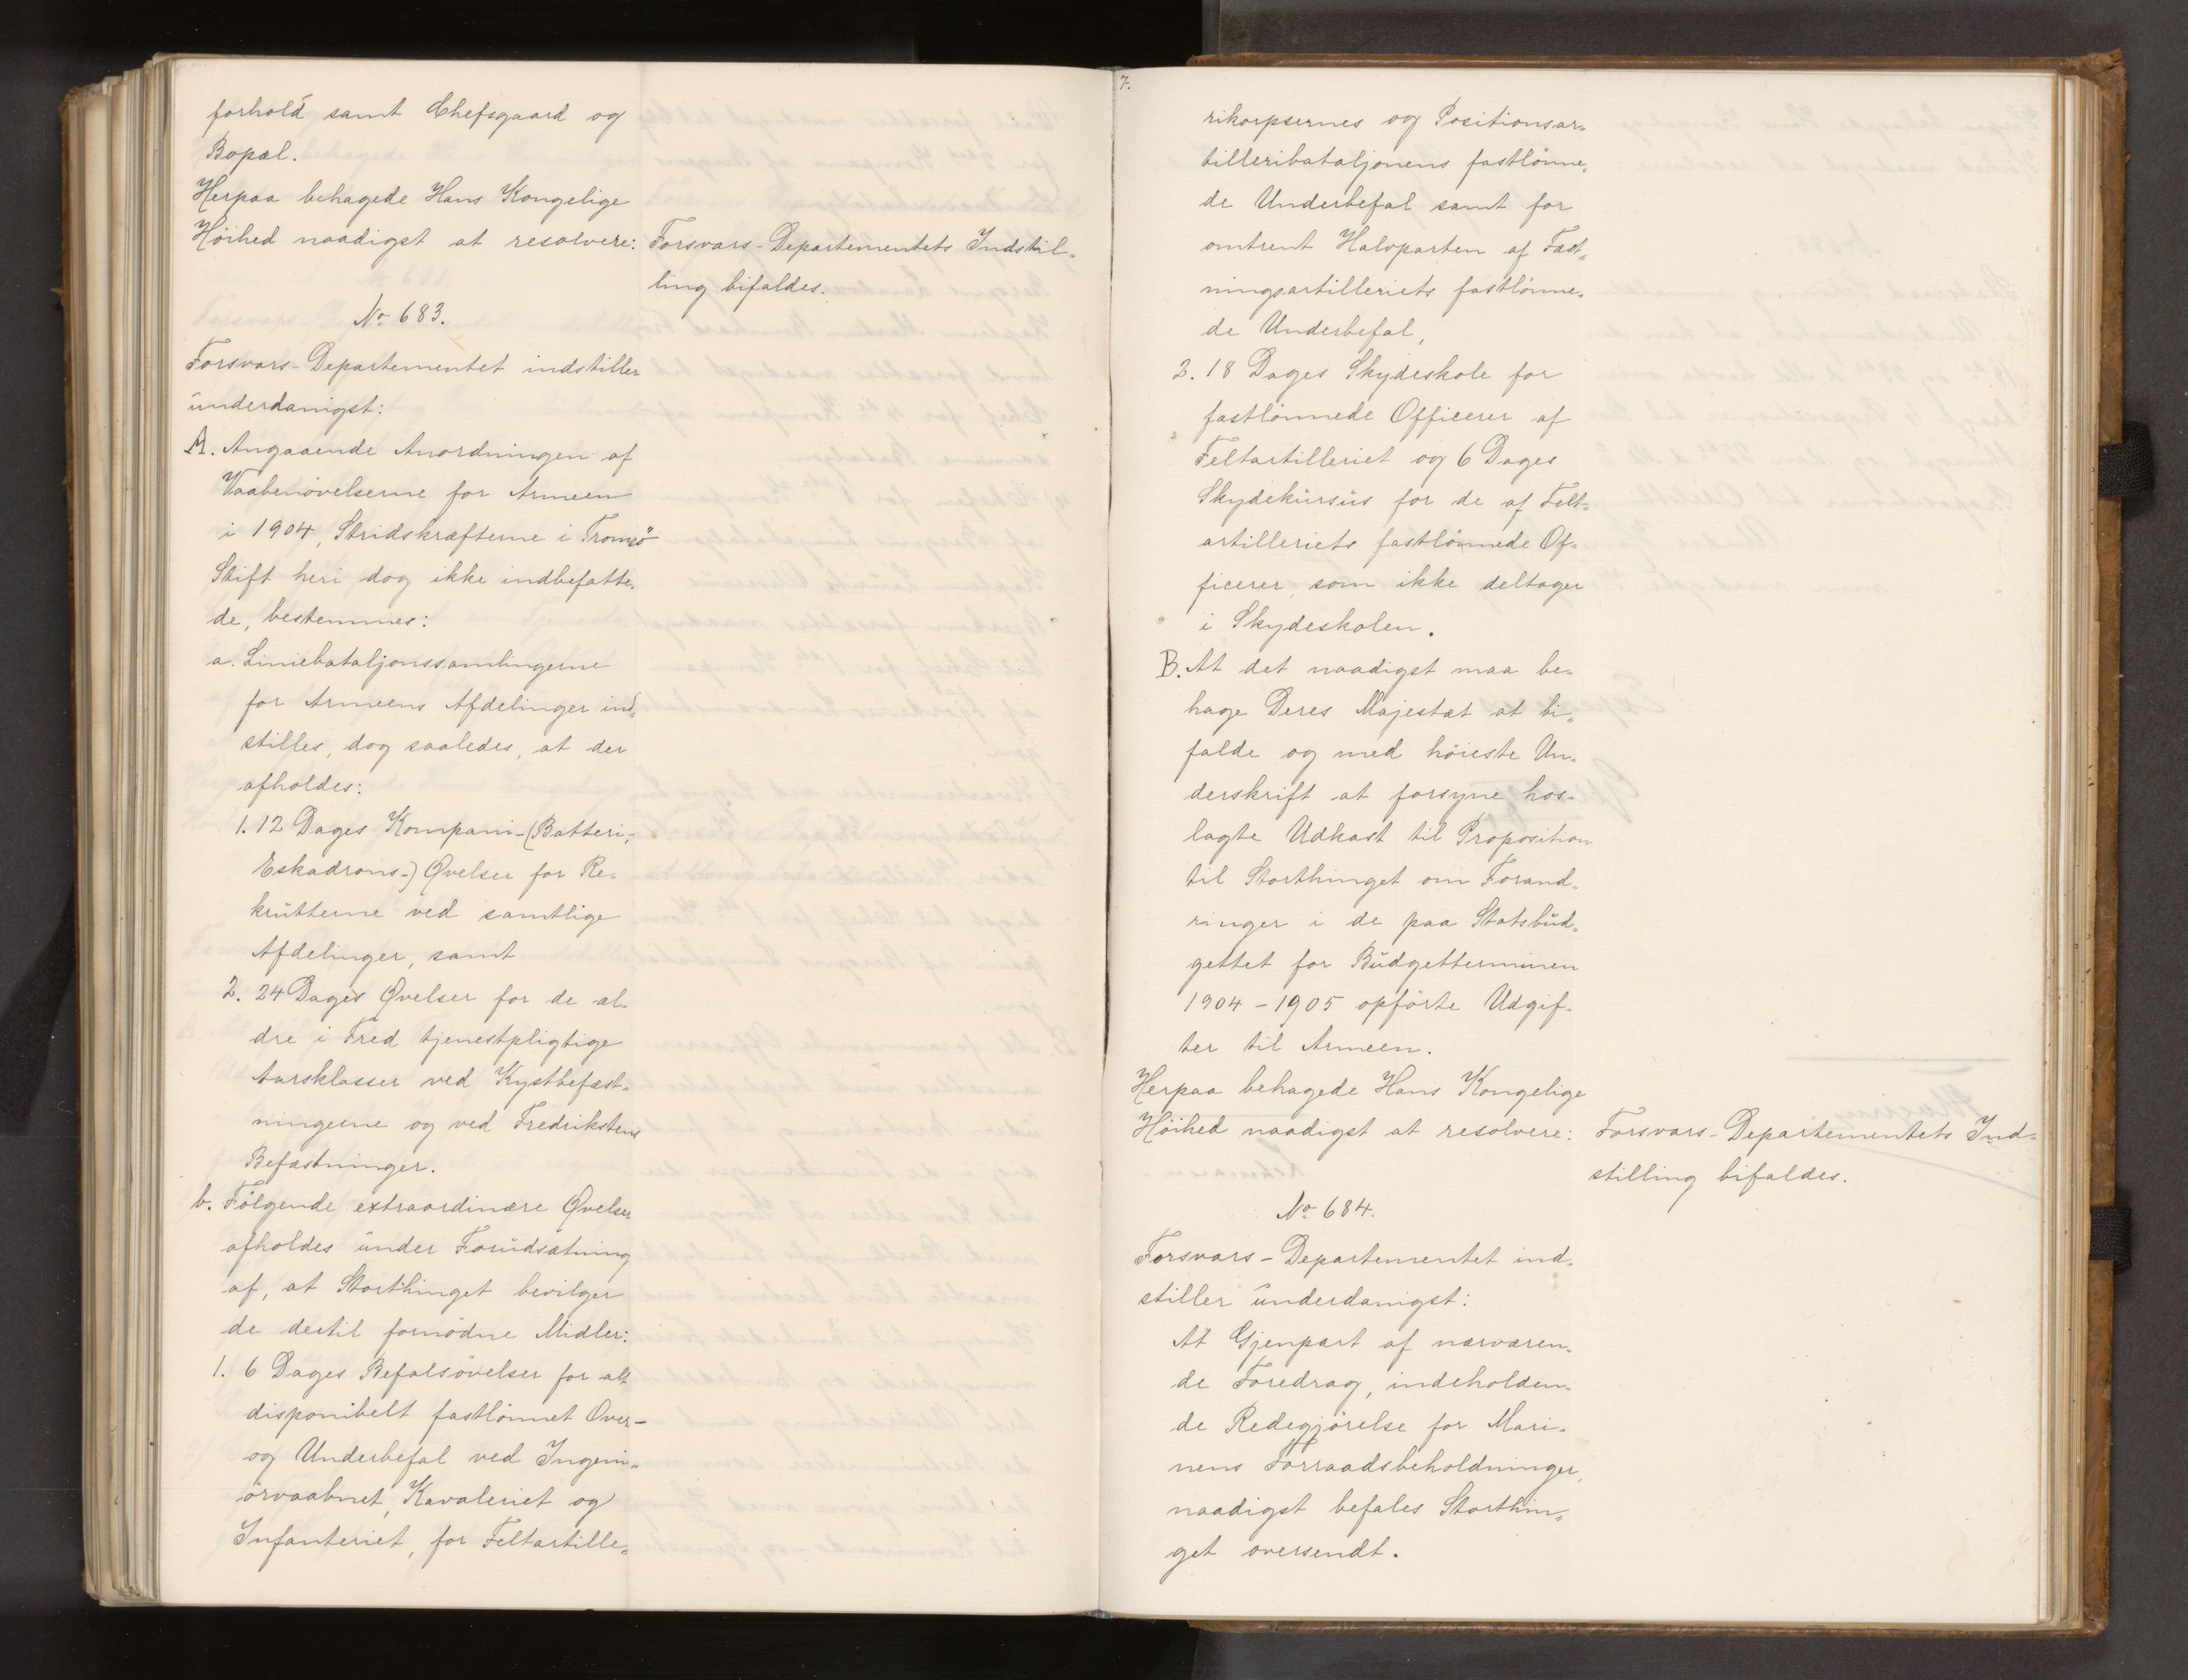 forhold samt Chefsgaard og
Bopæl.
Herpaa behagede Hans Kongelige
Höihed naadigst at resolvere:
Forsvars-Departementets Indstil-
ling bifaldes.
No 683.
Forsvars-Departementet indstiller
underdanigst:
A. Angaaende Anordningen af
Vaabenövelserne for Armeen
i 1904, Stridskræfterne i Tromsö
Stift heri dog ikke indbefatte-
de, bestemmes:
a. Liniebataljonssamlingerne
for Armeens Afdelinger ind-
stilles, dog saaledes, at der
afholdes:
1. 12 Dages Kompani-(Batteri-,
Eskadrons-) Øvelser for Re-
krutterne ved samtlige
Afdelinger, samt
2. 24 Dages Øvelser for de æl-
dre i Fred tjenestpligtige
Aarsklasser ved Kystbefæst-
ningerne og ved Fredrikstens
Befæstninger.
b. Fölgende extraordinære Øvelser
afholdes under Forudsætning
af, at Storthinget bevilger
de dertil fornödne Midler:
1. 6 Dages Befalsövelser for alt
disponibelt fastlönnet Over-
og Underbefal ved Ingeni-
örvaabnet, Kavaleriet og
Infanteriet, for Feltartille-
7.
rikorpsernes og Positionsar-
tilleribataljonens fastlönne-
de Underbefal samt for
omtrent Halvparten af Fæst-
ningsartilleriets fastlönne-
de Underbefal,
2. 18 Dages Skydeskole for
fastlönnede Officerer af
Feltartilleriet og 6 Dages
Skydekursus for de af Felt-
artilleriets fastlönnede Of-
ficerer, som ikke deltager
i Skydeskolen.
B. At det naadigst maa be-
hage Deres Majestæt at bi-
falde og med höieste Un-
derskrift at forsyne hos-
lagte Udkast til Proposition
til Storthinget om Forand-
ringer i de paa Statsbud-
gettet for Budgetterminen
1904-1905 opförte Udgif-
ter til Armeen.
Herpaa behagede Hans Kongelige
Höihed naadigst at resolvere:
Forsvars-Departementets Ind-
stilling bifaldes.
No 684.
Forsvars-Departementet ind-
stiller underdanigst:
At Gjenpart af nærværen-
de Foredrag, indeholden-
de Redegjörelse for Mari-
nens Forraadsbeholdninger,
naadigst befales Storthin-
get oversendt.